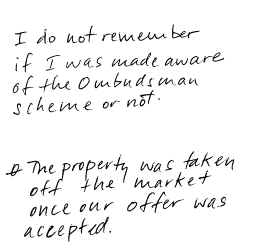 I do not remember
if I was made aware
of the Ombudsman
scheme or not.
The property was taken
off the market
once our offer was
accepted.